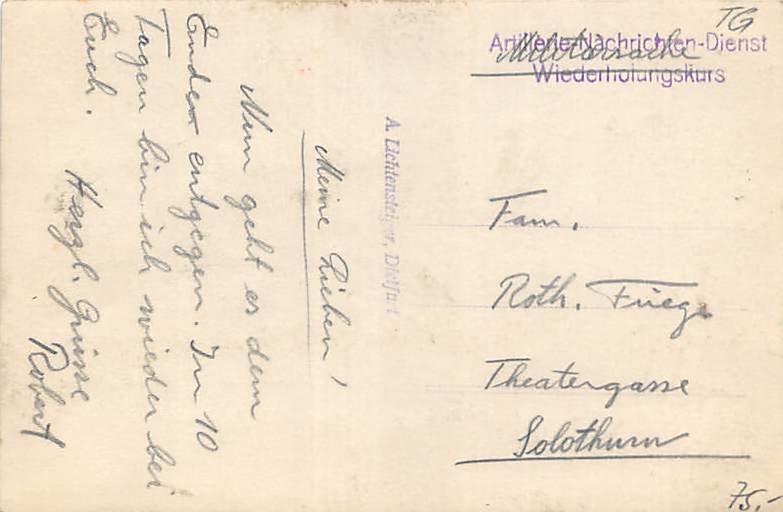 Meine Lieben!
Nun geht es dem
Ende entgegen. In 10
Tagen bin ich wieder bei
Euch. Herzl. Grüsse
Robert
A. Lichtensteiger, Dietfurt
TG
Artillerie-Nachrichten-Dienst
Wiederholungskurs
Militärsache
Fam.
Roth.
Theatergasse
Solothurn
75.-